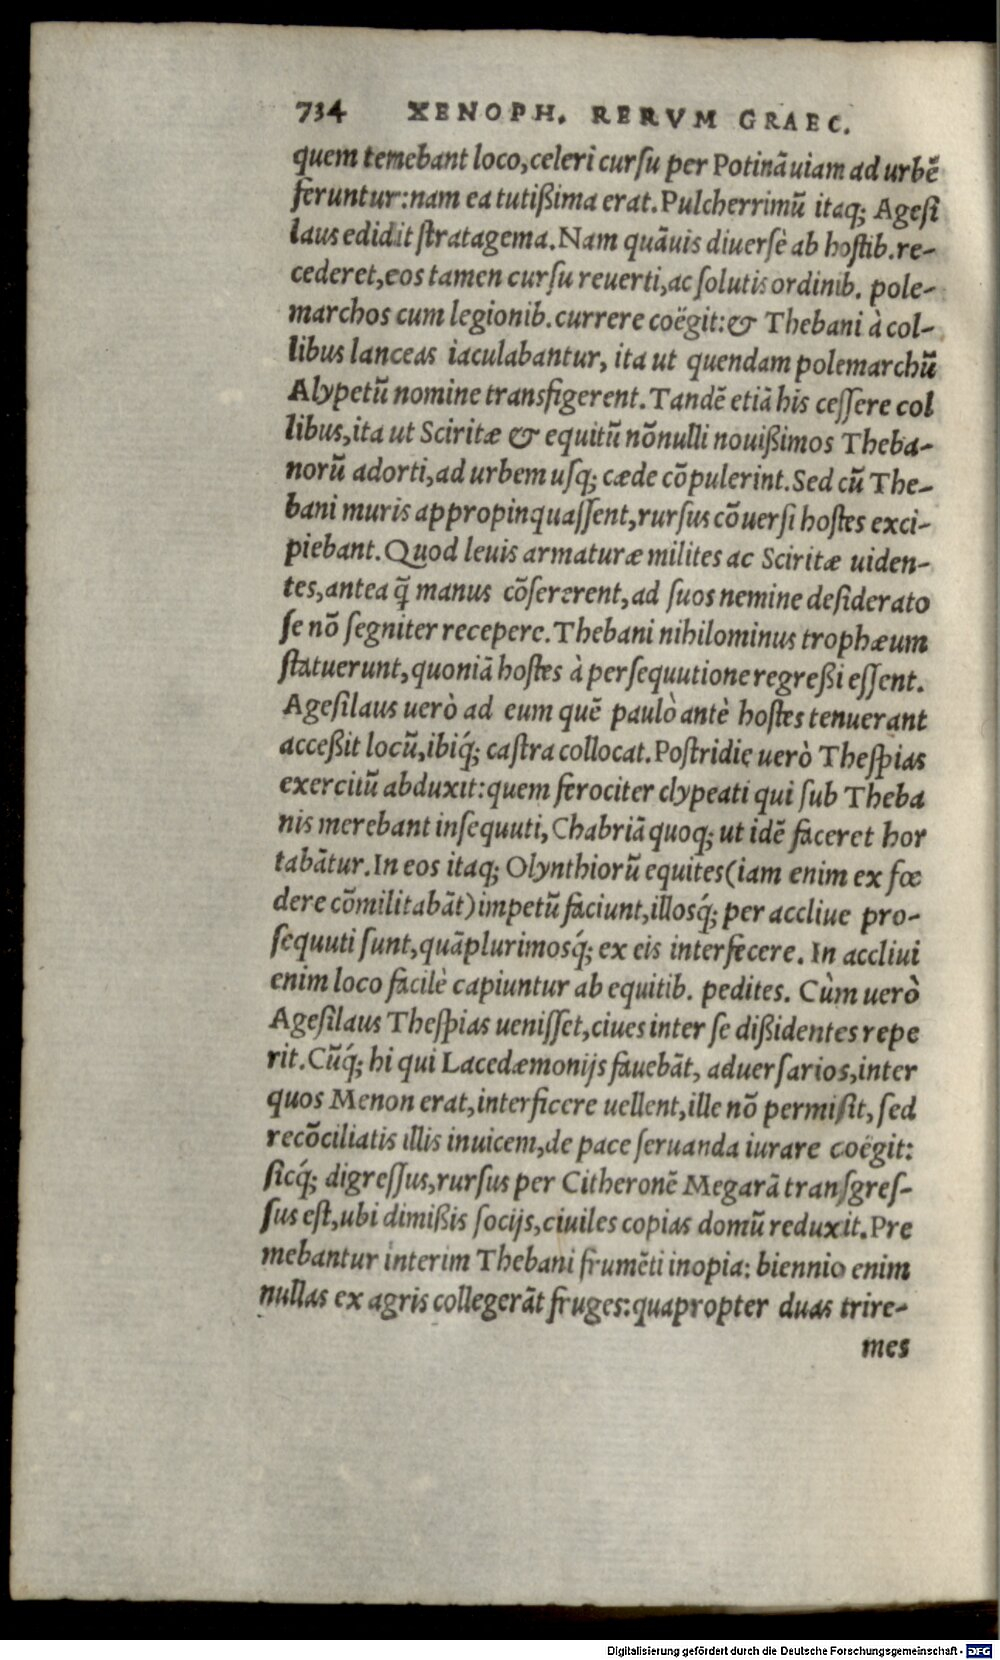 734 XENOPH. RERVM GRAEC.
quem temebant loco, celeri cursu per Potinā uiam ad urbē
feruntur: nam ea tutißima erat. Pulcherrimū itaq; Agesi
laus edidit stratagema. Nam quāuis diuersè ab hostib. re-
cederet, eos tamen cursu reuerti, ac solutis ordinib. pole-
marchos cum legionib. currere coëgit: & Thebani à col-
libus lanceas iaculabantur, ita ut quendam polemarchū
Alypetū nomine transfigerent. Tandē etiā his cessere col
libus, ita ut Sciritæ & equitū nōnulli nouißimos Theba-
norū adorti, ad urbem usq; cæde cōpulerint. Sed cū The-
bani muris appropinquassent, rursus cōuersi hostes exci-
piebant. Quod leuis armaturæ milites ac Sciritæ uiden-
tes, antea q̄ manus cōsererent, ad suos nemine desiderato
se nō segniter recepere. Thebani nihilominus trophæum
statuerunt, quoniā hostes à persequutione regreßi essent.
Agesilaus uerò ad eum quē paulò antè hostes tenuerant
acceßit locū, ibiq́; castra collocat. Postridie uerò Thespias
exercitū abduxit: quem ferociter clypeati qui sub Theba
nis merebant insequuti, Chabriā quoq; ut idē faceret hor
tabātur. In eos itaq; Olynthiorū equites (iam enim ex fœ
dere cōmilitabāt) impetū faciunt, illosq́; per accliue pro-
sequuti sunt, quāplurimosq́; ex eis interfecere. In accliui
enim loco facilè capiuntur ab equitib. pedites. Cùm uerò
Agesilaus Thespias uenisset, ciues inter se dißidentes repe
rit. Cūq́; hi qui Lacedæmonijs fauebāt, aduersarios, inter
quos Menon erat, interficere uellent, ille nō permisit, sed
recōciliatis illis inuicem, de pace seruanda iurare coëgit:
sicq́; digressus, rursus per Citheronē Megarā transgres-
sus est, ubi dimißis socijs, ciuiles copias domū reduxit. Pre
mebantur interim Thebani frumēti inopia: biennio enim
nullas ex agris collegerāt fruges: quapropter duas trire-
mes
Digitalisierung gefördert durch die Deutsche Forschungsgemeinschaft - DFG